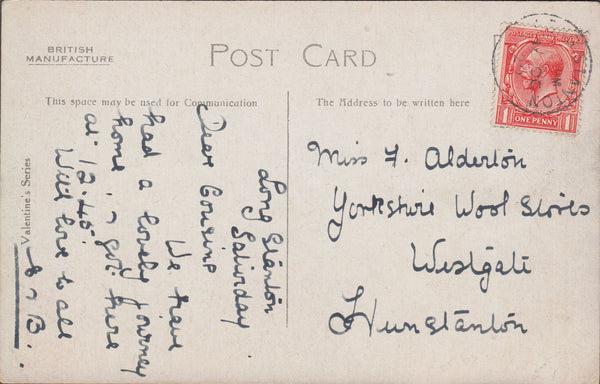 BRITISH
MANUFACTURE
POST CARD
This space may be used for Communication
The Address to be written here
Valentine's Series
Long Stanton
Saturday
Dear Cousins
We have
had a lovely journey
home, & got here
at 12.45.
With love to all
E & B.
POSTAGE
ONE PENNY
Miss F. Alderton
Yorkshire Wool Stores
Westgate
Hunstanton